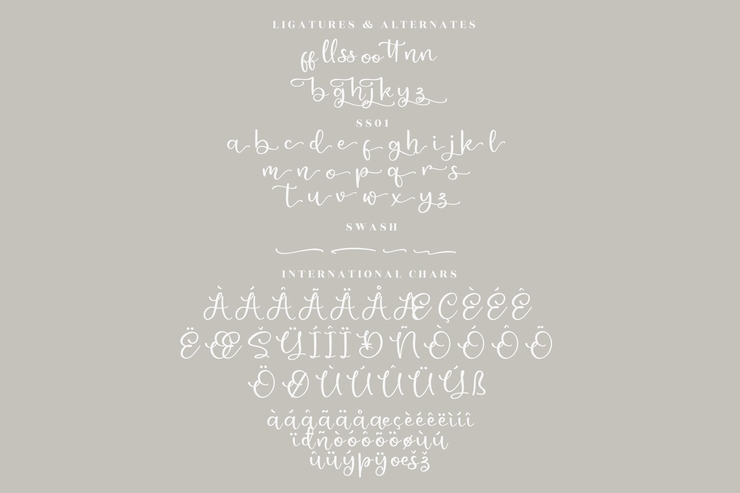 LIGATURES & ALTERNATES
ff ll ss oo tt nn
b g h j k y z
SS01
a b c d e f g h i j k l
m n o p q r s
t u v w x y z
SWASH
INTERNATIONAL CHARS
À Á Â Ã Ä Å Æ Ç È É Ê
Ë Œ Š Ÿ Í Î Ï Ð Ñ Ò Ó Ô Õ
Ö Ø Ù Ú Û Ü Ý ß
à á â ã ä å æ ç è é ê ë ì í î
ï đ ñ ò ó ô õ ö ø ù ú
û ü ý þ ÿ œ š ž